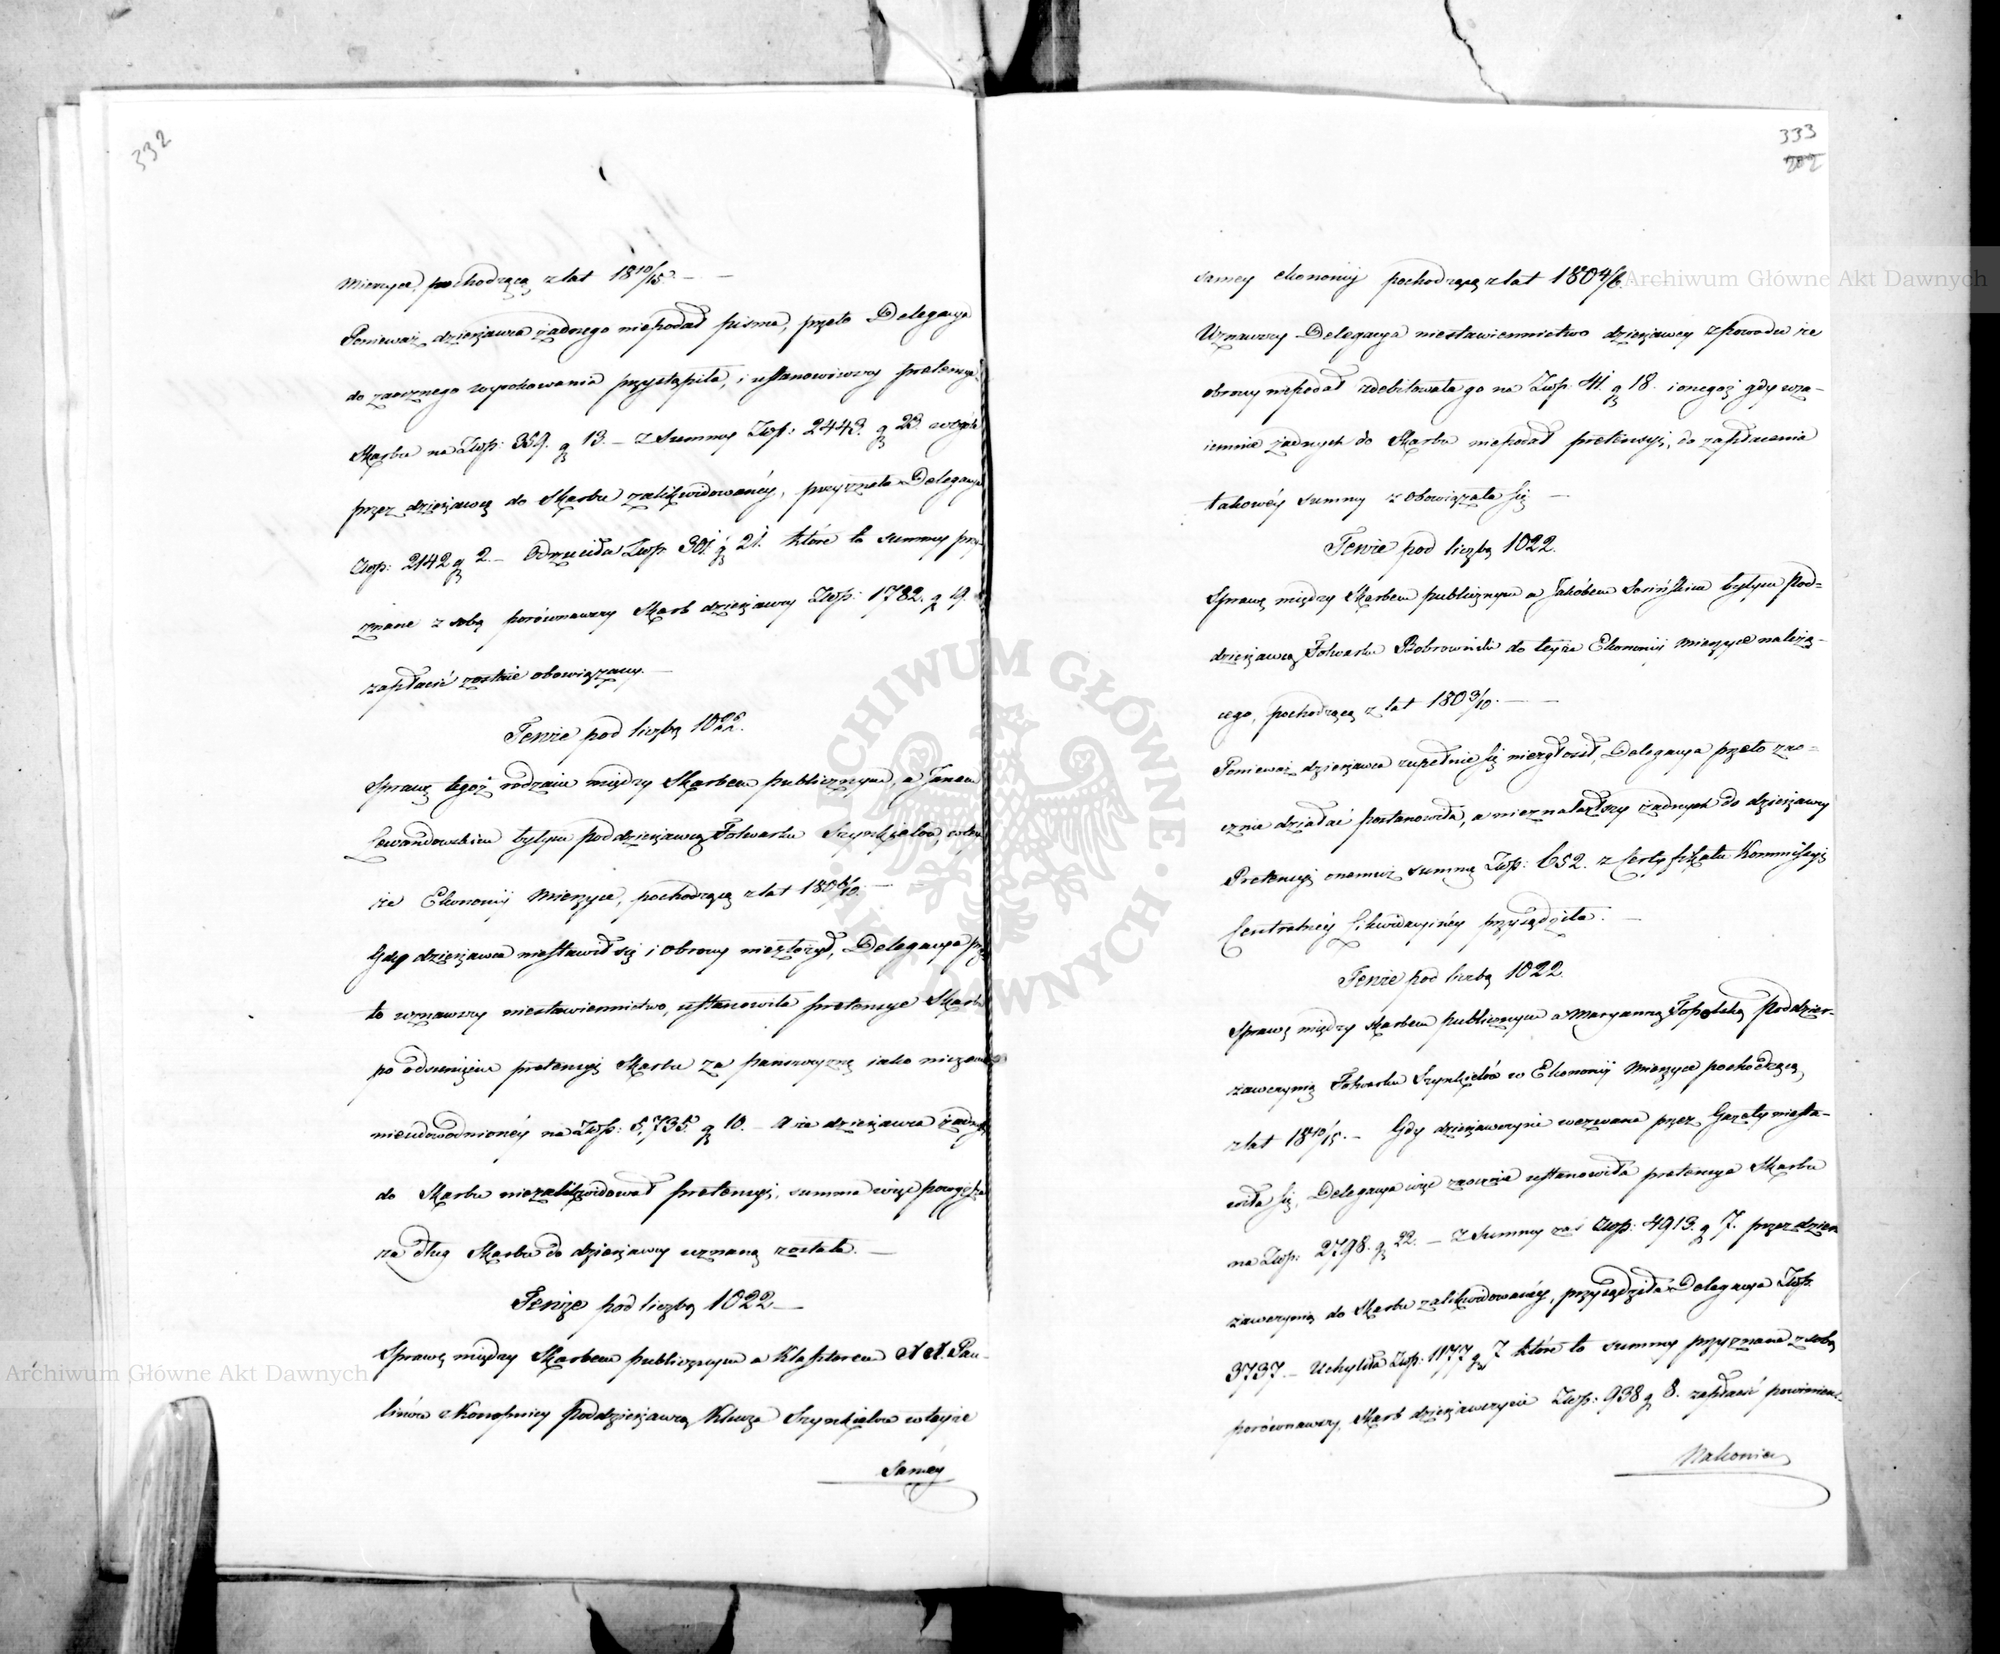 332
Mierzyce, pochodzącą z lat 18 10/15. — —
Ponieważ dzierżawca żadnego niepodał pisma, przeto Delegacya
do zaocznego wyrokowania przystąpiła, i ustanowiwszy pretensye
Skarbu na Złłp: 359. g 13. — z Summy Złłp: 2443. g 23.
przez dzierżawcę do Skarbu zalikwidowanéy, przyznała Delegacya
Złłp: 2142 g 2. — Odrzuciła Złłp. 301. g 21. które to summy przy-
znane z sobą porównawszy Skarb dzierżawcy Złłp: 1782. g 19.
zapłacić zostaie obowiązany. —
Tenże pod liczbą 1022.
Sprawę tegoż rodzaiu między Skarbem publicznym, a Janem
Lewandowskim byłym poddzierżawcą Folwarku Szynkielów, w tey-
że Ekonomij Mierzyce, pochodzącą z lat 180 6/10. —
Gdy dzierżawca niestawił się i obrony niezłożył, Delegacya prze
to uznawszy niestawiennictwo, ustanowiła pretensye Skarbu
po odsunięciu pretensyi Skarbu za pańszczyznę iako
nieudowodnionéy na Złłp: 5,735. g 10. — A że dzierżawca żadnych
do Skarbu niezalikwidował pretensyi, summa więc powyższa
za dług Skarbu do dzierżawcy uznaną została. —
Tenże pod liczbą 1022 —
Sprawę między Skarbem publicznym a Klasztorem XX. Pau-
linów z Konopnicy Poddzierżawcą Klucza Szynkielów w teyże
Saméy
333
202
samey Ekonomij pochodzącą z lat 180 4/6.
Uznawszy Delegacya niestawiennictwo dzierżawcy z powodu że
obrony niepodał zdebitowała go na Złłp. 41. g 18. i onegoż gdy wza-
iemnie żadnych do Skarbu niepodał pretensyi, do zapłacenia
takowéy summy zobowiązała się —
Tenże pod liczbą 1022.
Sprawę między Skarbem publicznym a Jakóbem Sosińskim byłym Pod-
dzierżawcą Folwarku Bobrowniki do teyże Ekonomij Mierzyce należą-
cego, pochodzącą z lat 180 9/10. — —
Ponieważ dzierżawca zupełnie się niezgłosił, Delegacya przeto zao-
cznie działać postanowiła, a nieznalazłszy żadnych do dzierżawcy
Pretensyi onemuż summę Złłp: 652. z Certyfikatu Kommissyi
Centralnéy Likwidacyinéy przysądziła. —
Tenże pod liczbą 1022.
Sprawę między Skarbem publicznym a Maryanną Topolską Poddzier-
żawczynią Folwarku Szynkielów w Ekonomij Mierzyce pochodzącą,
z lat 18 10/15. — Gdy dzierżawczyni wezwana przez Gazety niesta-
wiła się, Delegacya więc zaocznie ustanowiła pretensye Skarbu
na Złłp: 2798. g 22. — Z Summy zaś Złłp: 4913. g 7. przez dzier-
żawczynię do Skarbu zalikwidowanéy, przysądziła Delegacya Złłp.
3737. — Uchyliła Złłp: 1177 g 7 które to summy przyznane z sobą
porównawszy, Skarb dzierżawczyni Złłp: 938 g 8. zapłacić powinien. —
Nakoniec
Archiwum Główne Akt Dawnych
Archiwum Główne Akt Dawnych
ARCHIWUM GŁÓWNE AKT DAWNYCH